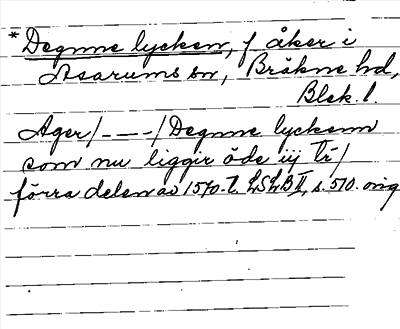 * Degnne lycken, f åker i
Asarums sn, Bräkne hd,
Blek. l.
Ager/----/Degnne lyckenn
som nu liggir öde iij Tr/
förra delen av 1570-t. LSLB II, s. 510. orig